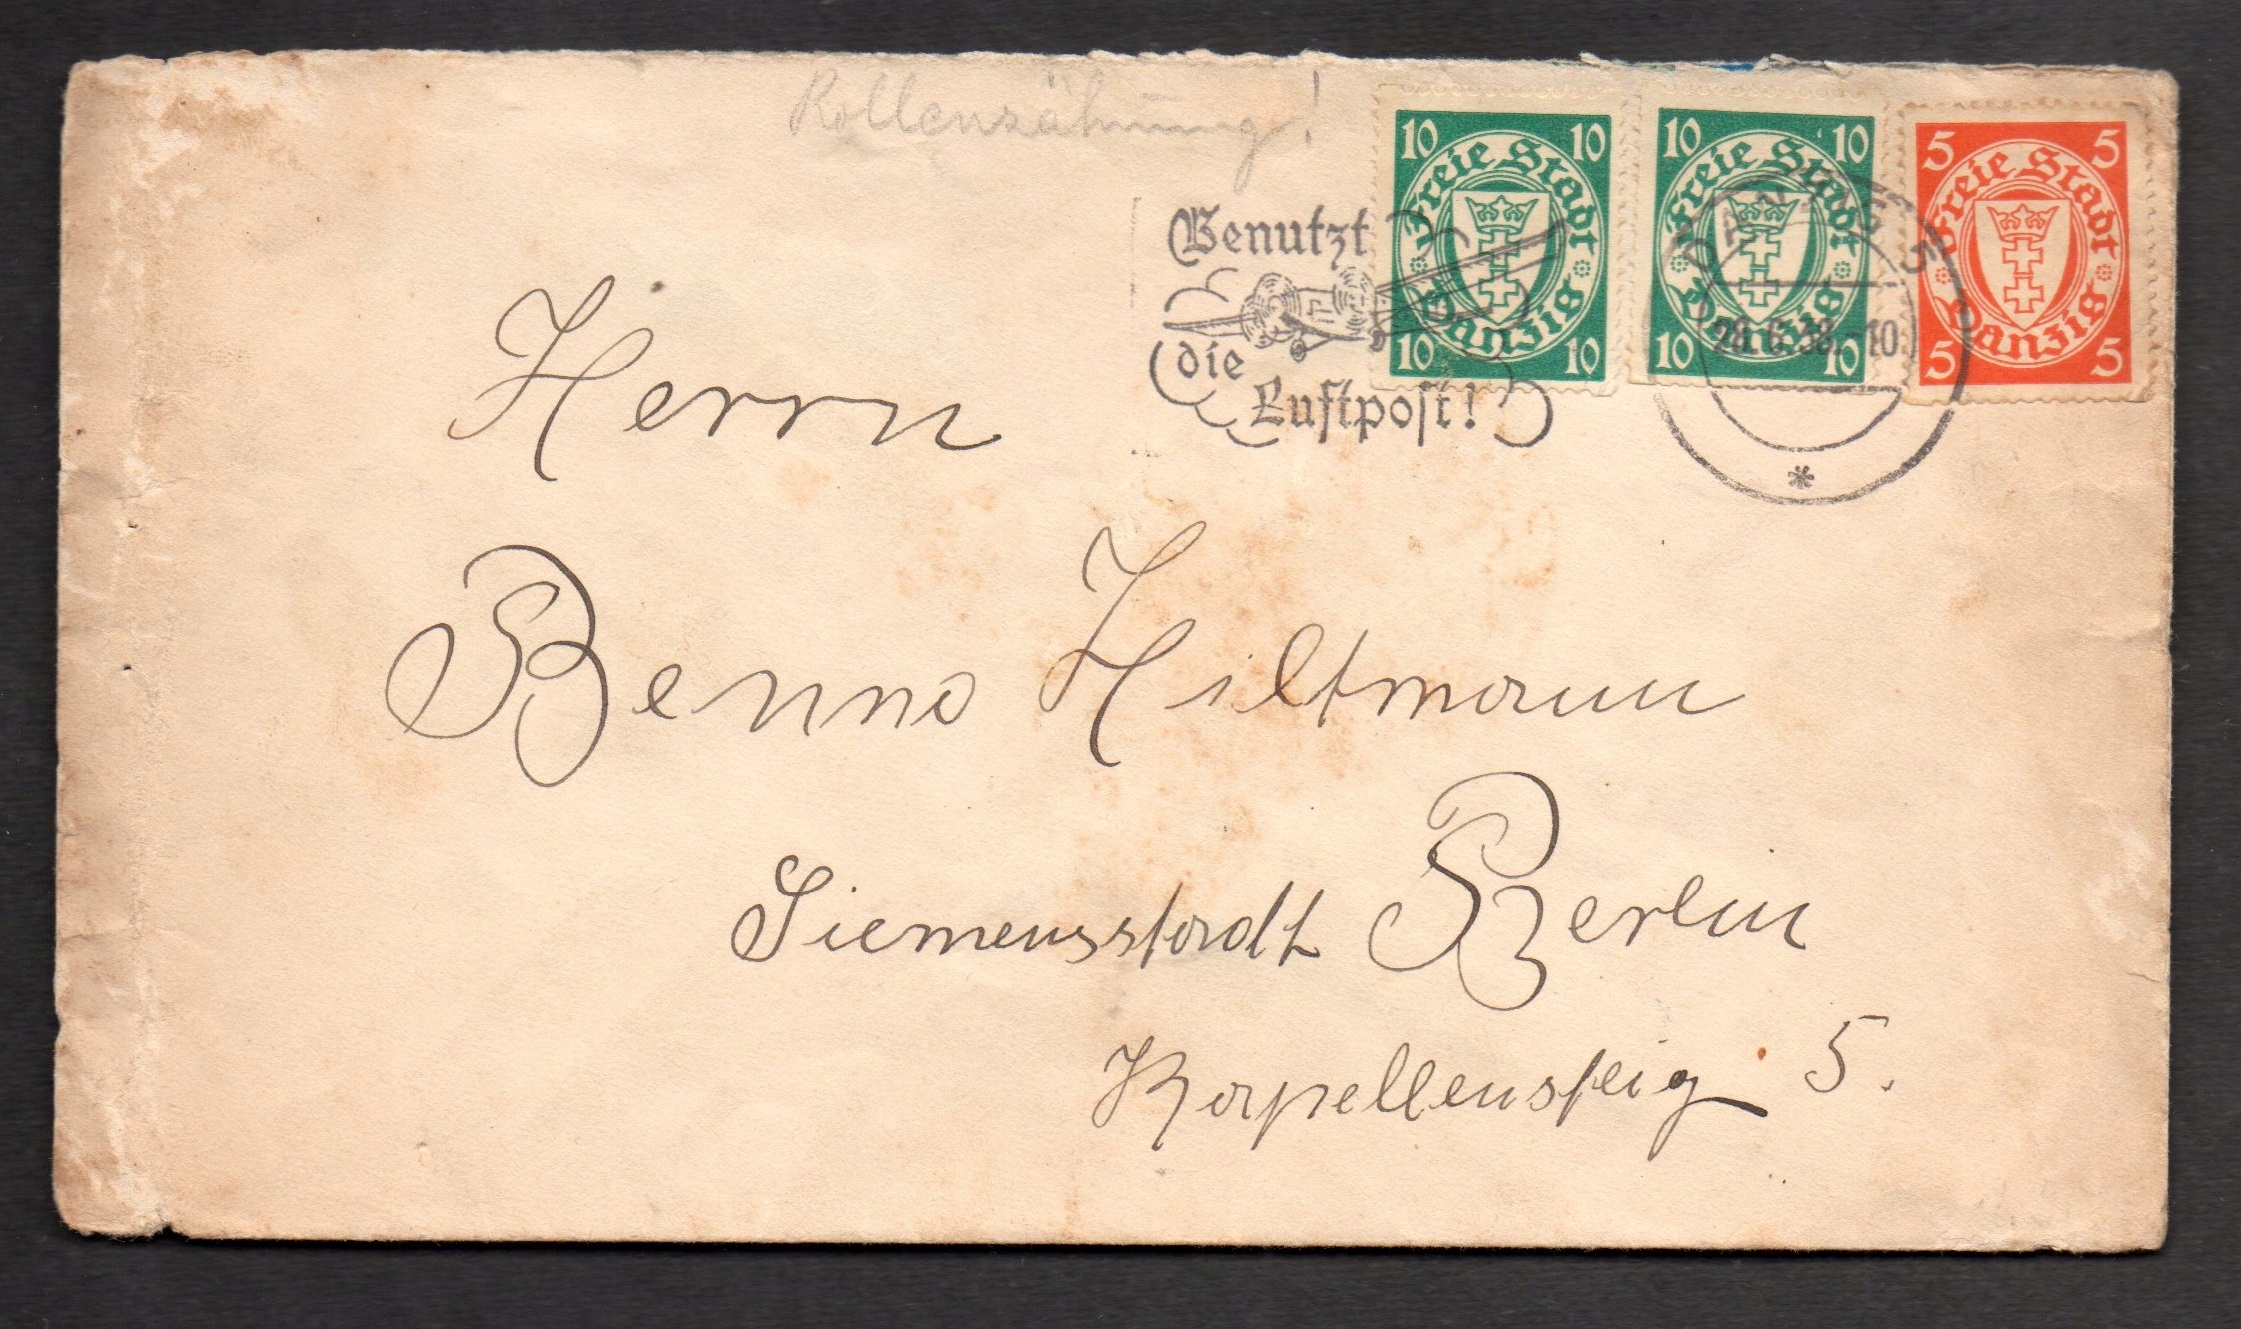 Rollenzähnung!
10 10
Freie Stadt
Danzig
10 10
10 10
Freie Stadt
Danzig
10 10
5 5
Freie Stadt
Danzig
5 5
Benutzt
die
Luftpost!
DANZIG 5
28.6.38. 10
*
Herrn
Benno Hiltmann
Siemensstadt Berlin
Kapellensteig 5.